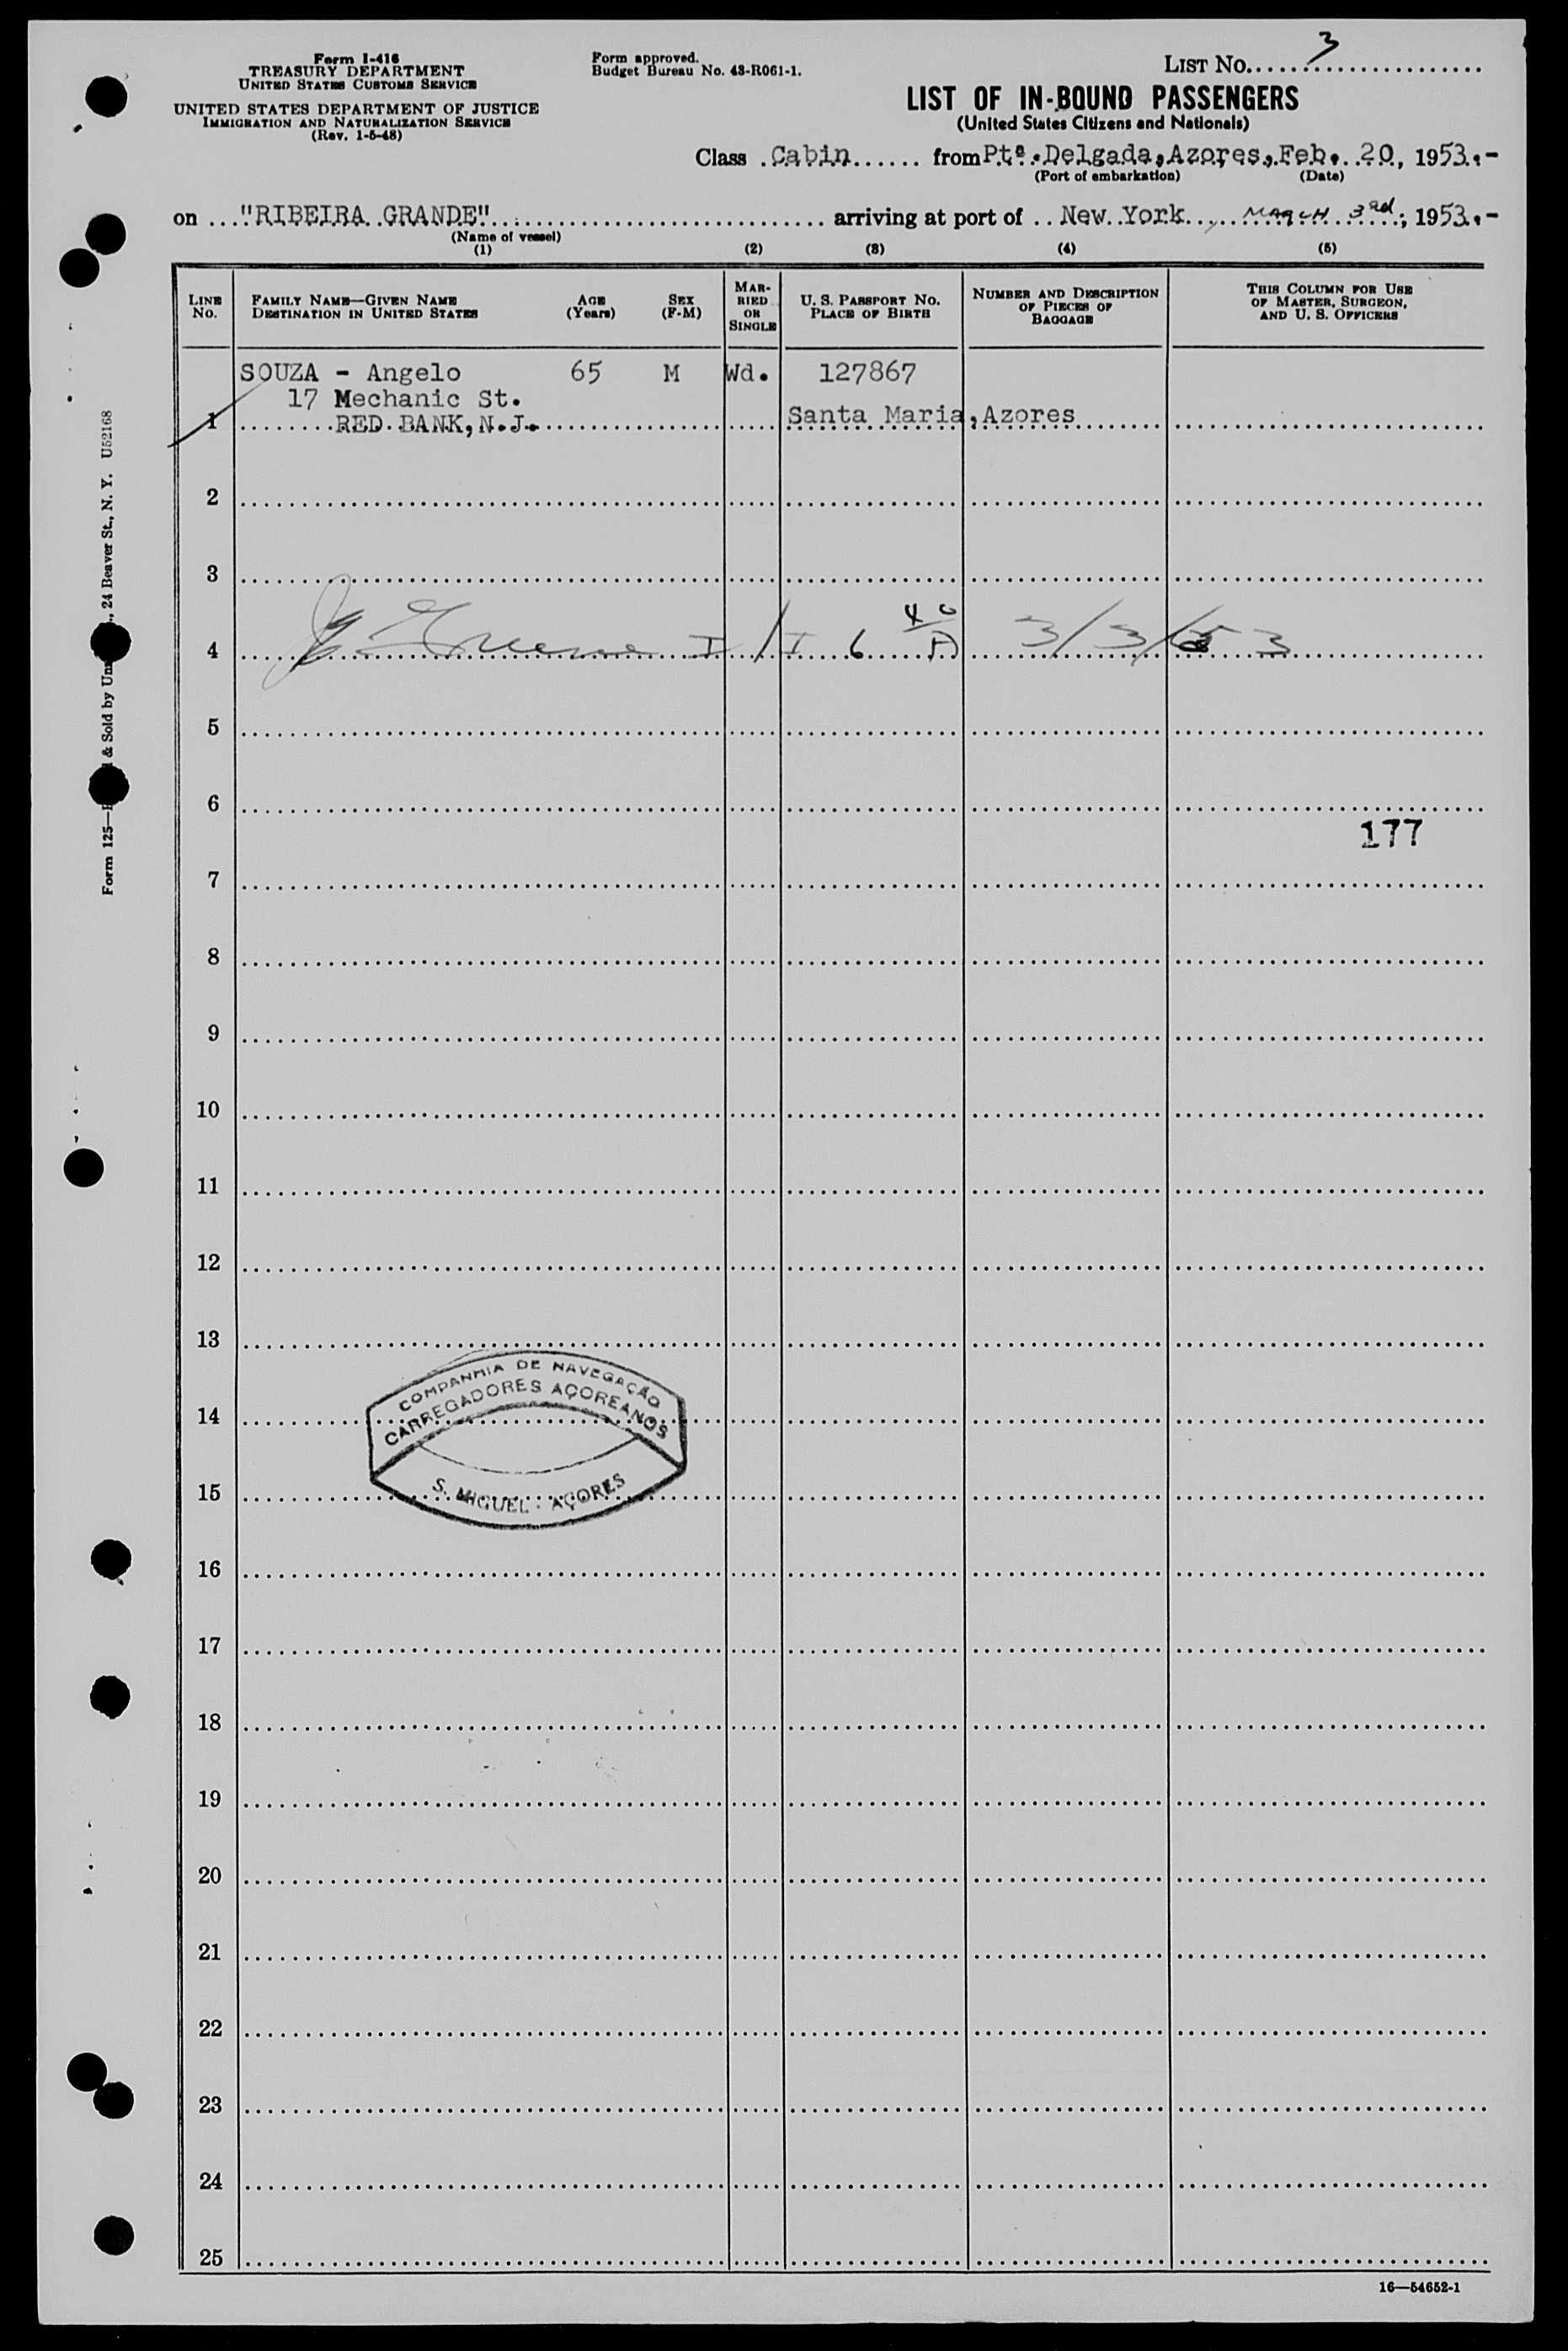 Form I-416
TREASURY DEPARTMENT
UNITED STATES CUSTOMS SERVICE
UNITED STATES DEPARTMENT OF JUSTICE
IMMIGRATION AND NATURALIZATION SERVICE
(Rev. 1-5-48)
Form approved.
Budget Bureau No. 43-R061-1.
LIST No. 3
LIST OF IN-BOUND PASSENGERS
(United States Citizens and Nationals)
Class Cabin from Pta. Delgada, Azores, Feb. 20, 1953.-
(Port of embarkation) (Date)
on "RIBEIRA GRANDE" arriving at port of New York, MARCH 3rd, 1953.-
(Name of vessel)
(1) (2) (3) (4) (5)
LINE No.
FAMILY NAME—GIVEN NAME
DESTINATION IN UNITED STATES
AGE (Years)
SEX (F-M)
MARRIED OR SINGLE
U. S. PASSPORT No.
PLACE OF BIRTH
NUMBER AND DESCRIPTION OF PIECES OF BAGGAGE
THIS COLUMN FOR USE OF MASTER, SURGEON, AND U. S. OFFICERS
SOUZA - Angelo 65 M Wd. 127867
17 Mechanic St.
1 RED BANK, N.J. Santa Maria, Azores
2
3
4 Greene I/I 6 3/3/53
5
6
177
7
8
9
10
11
12
13
COMPANHIA DE NAVEGAÇÃO
CARREGADORES AÇOREANOS
14
S. MIGUEL - AÇORES
15
16
17
18
19
20
21
22
23
24
25
16—54652-1
Form 125— & Sold by , 24 Beaver St., N. Y. U52168